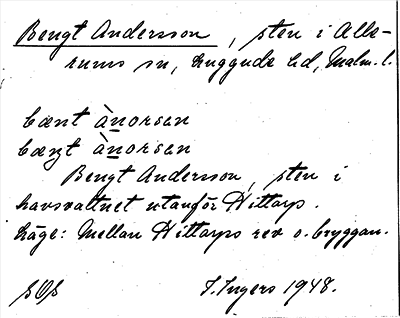 Bengt Andersson, sten i Alle-
rums sn, Luggude hd, Malm. l.
bænt ànorsan
bæŋt ànorsan
Bengt Andersson, sten i
havsvattnet utanför Hittarp.
Läge: Mellan Hittarps rev o. bryggan.
I. Ingers 1948.